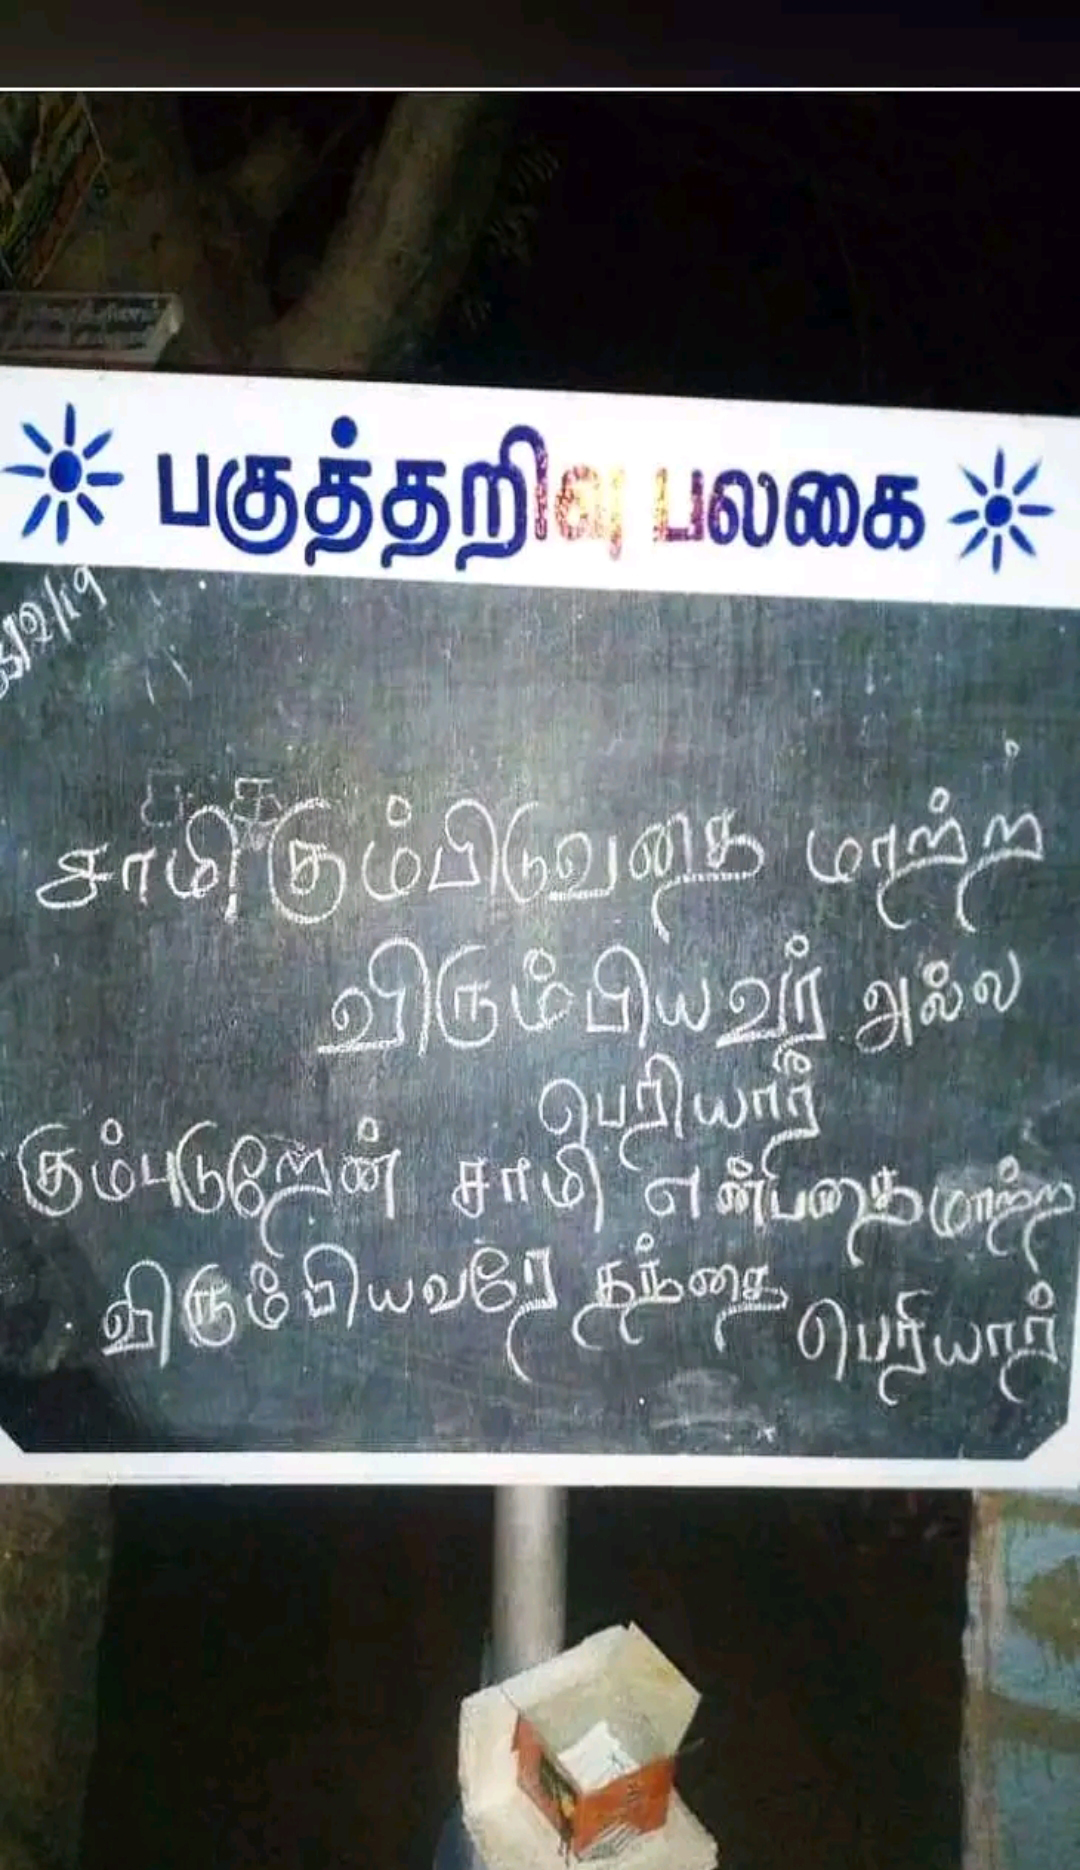 பகுத்தறிவு பலகை
சாமி கும்பிடுவதை மாற்ற
விரும்பியவர் அல்ல
பெரியார்
கும்புடுறேன் சாமி என்பதை மாற்ற
விரும்பியவரே தந்தை
பெரியார்